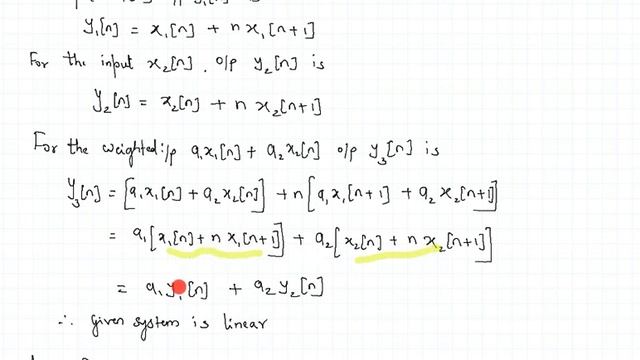 y₁[n] = x₁[n] + n x₁[n+1]
For the input x₂[n], o/p y₂[n] is
y₂[n] = x₂[n] + n x₂[n+1]
For the weighted i/p a₁x₁[n] + a₂x₂[n] o/p y₃[n] is
y₃[n] = [a₁x₁[n] + a₂x₂[n]] + n[a₁x₁[n+1] + a₂x₂[n+1]]
= a₁[x₁[n] + n x₁[n+1]] + a₂[x₂[n] + n x₂[n+1]]
= a₁y₁[n] + a₂y₂[n]
∴ given system is linear